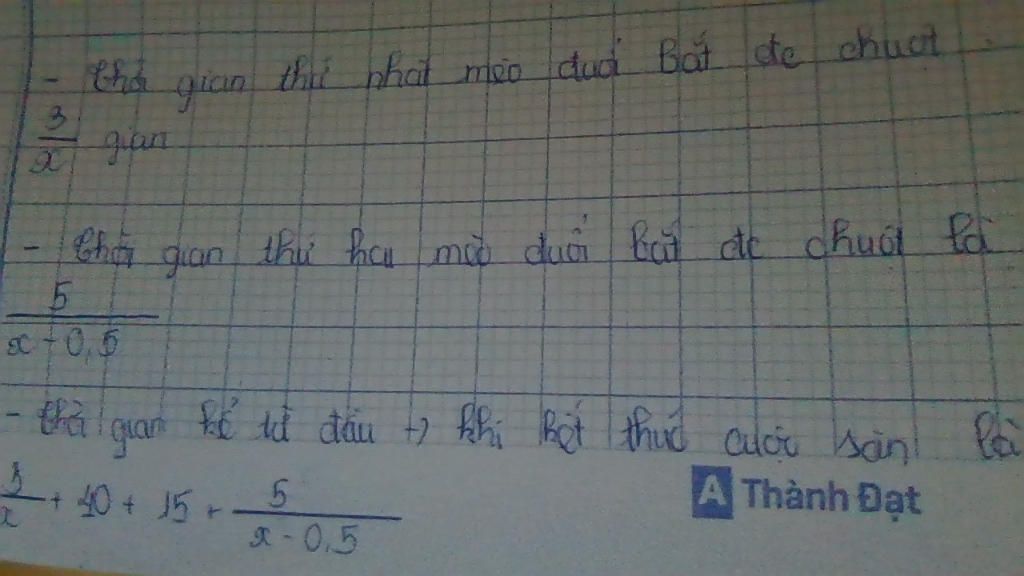 - thời gian thứ nhất mèo đuổi bắt đc chuột
3/x giấn
- thời gian thứ hai mèo đuổi bắt đc chuột là
5/(x - 0,5)
- thời gian kể từ đầu → khi kết thúc cuộc săn là
3/x + 40 + 15 + 5/(x - 0,5)
A Thành Đạt